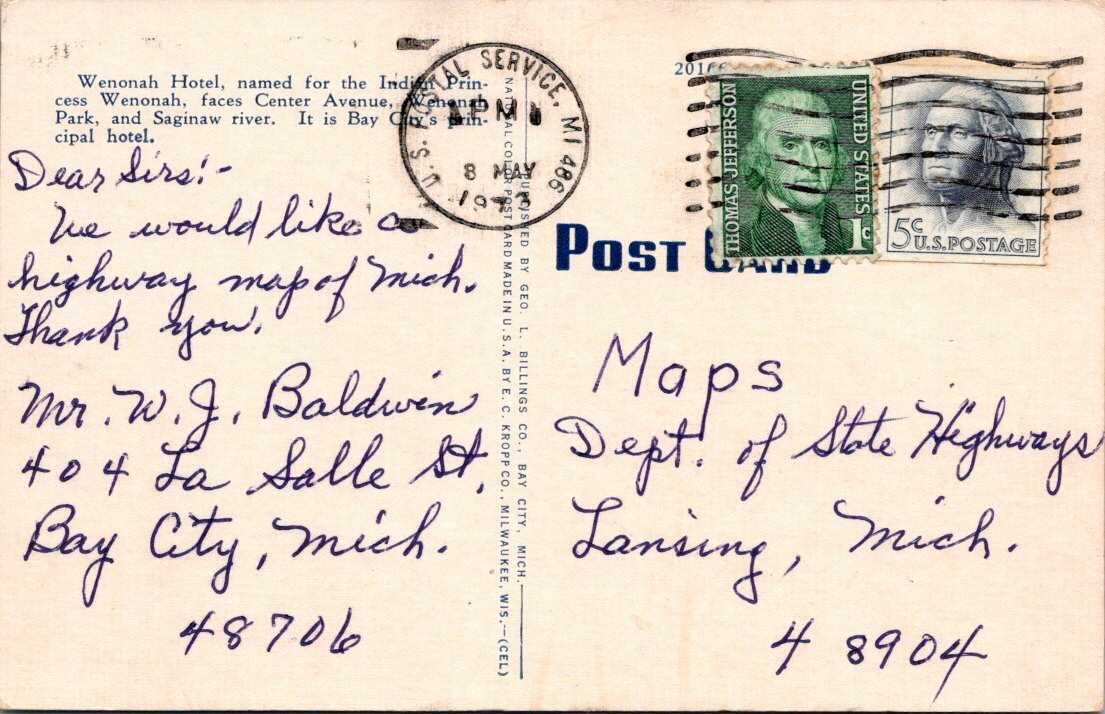 Wenonah Hotel, named for the Indian Prin-
cess Wenonah, faces Center Avenue, Wenonah
Park, and Saginaw river. It is Bay City's prin-
cipal hotel.
Dear Sirs:-
We would like a
highway map of Mich.
Thank you.
Mr. W. J. Baldwin
404 La Salle St.
Bay City, Mich.
48706
U.S. POSTAL SERVICE, MI 486
PM
8 MAY
1973
NATIONAL COLOR POST CARD MADE IN U.S.A. BY E. C. KROPP CO., MILWAUKEE, WIS.—(CEL)
PUBLISHED BY GEO. L. BILLINGS CO., BAY CITY, MICH.
POST CARD
THOMAS JEFFERSON
UNITED STATES
1c
5c
U.S. POSTAGE
Maps
Dept. of State Highways
Lansing, Mich.
48904